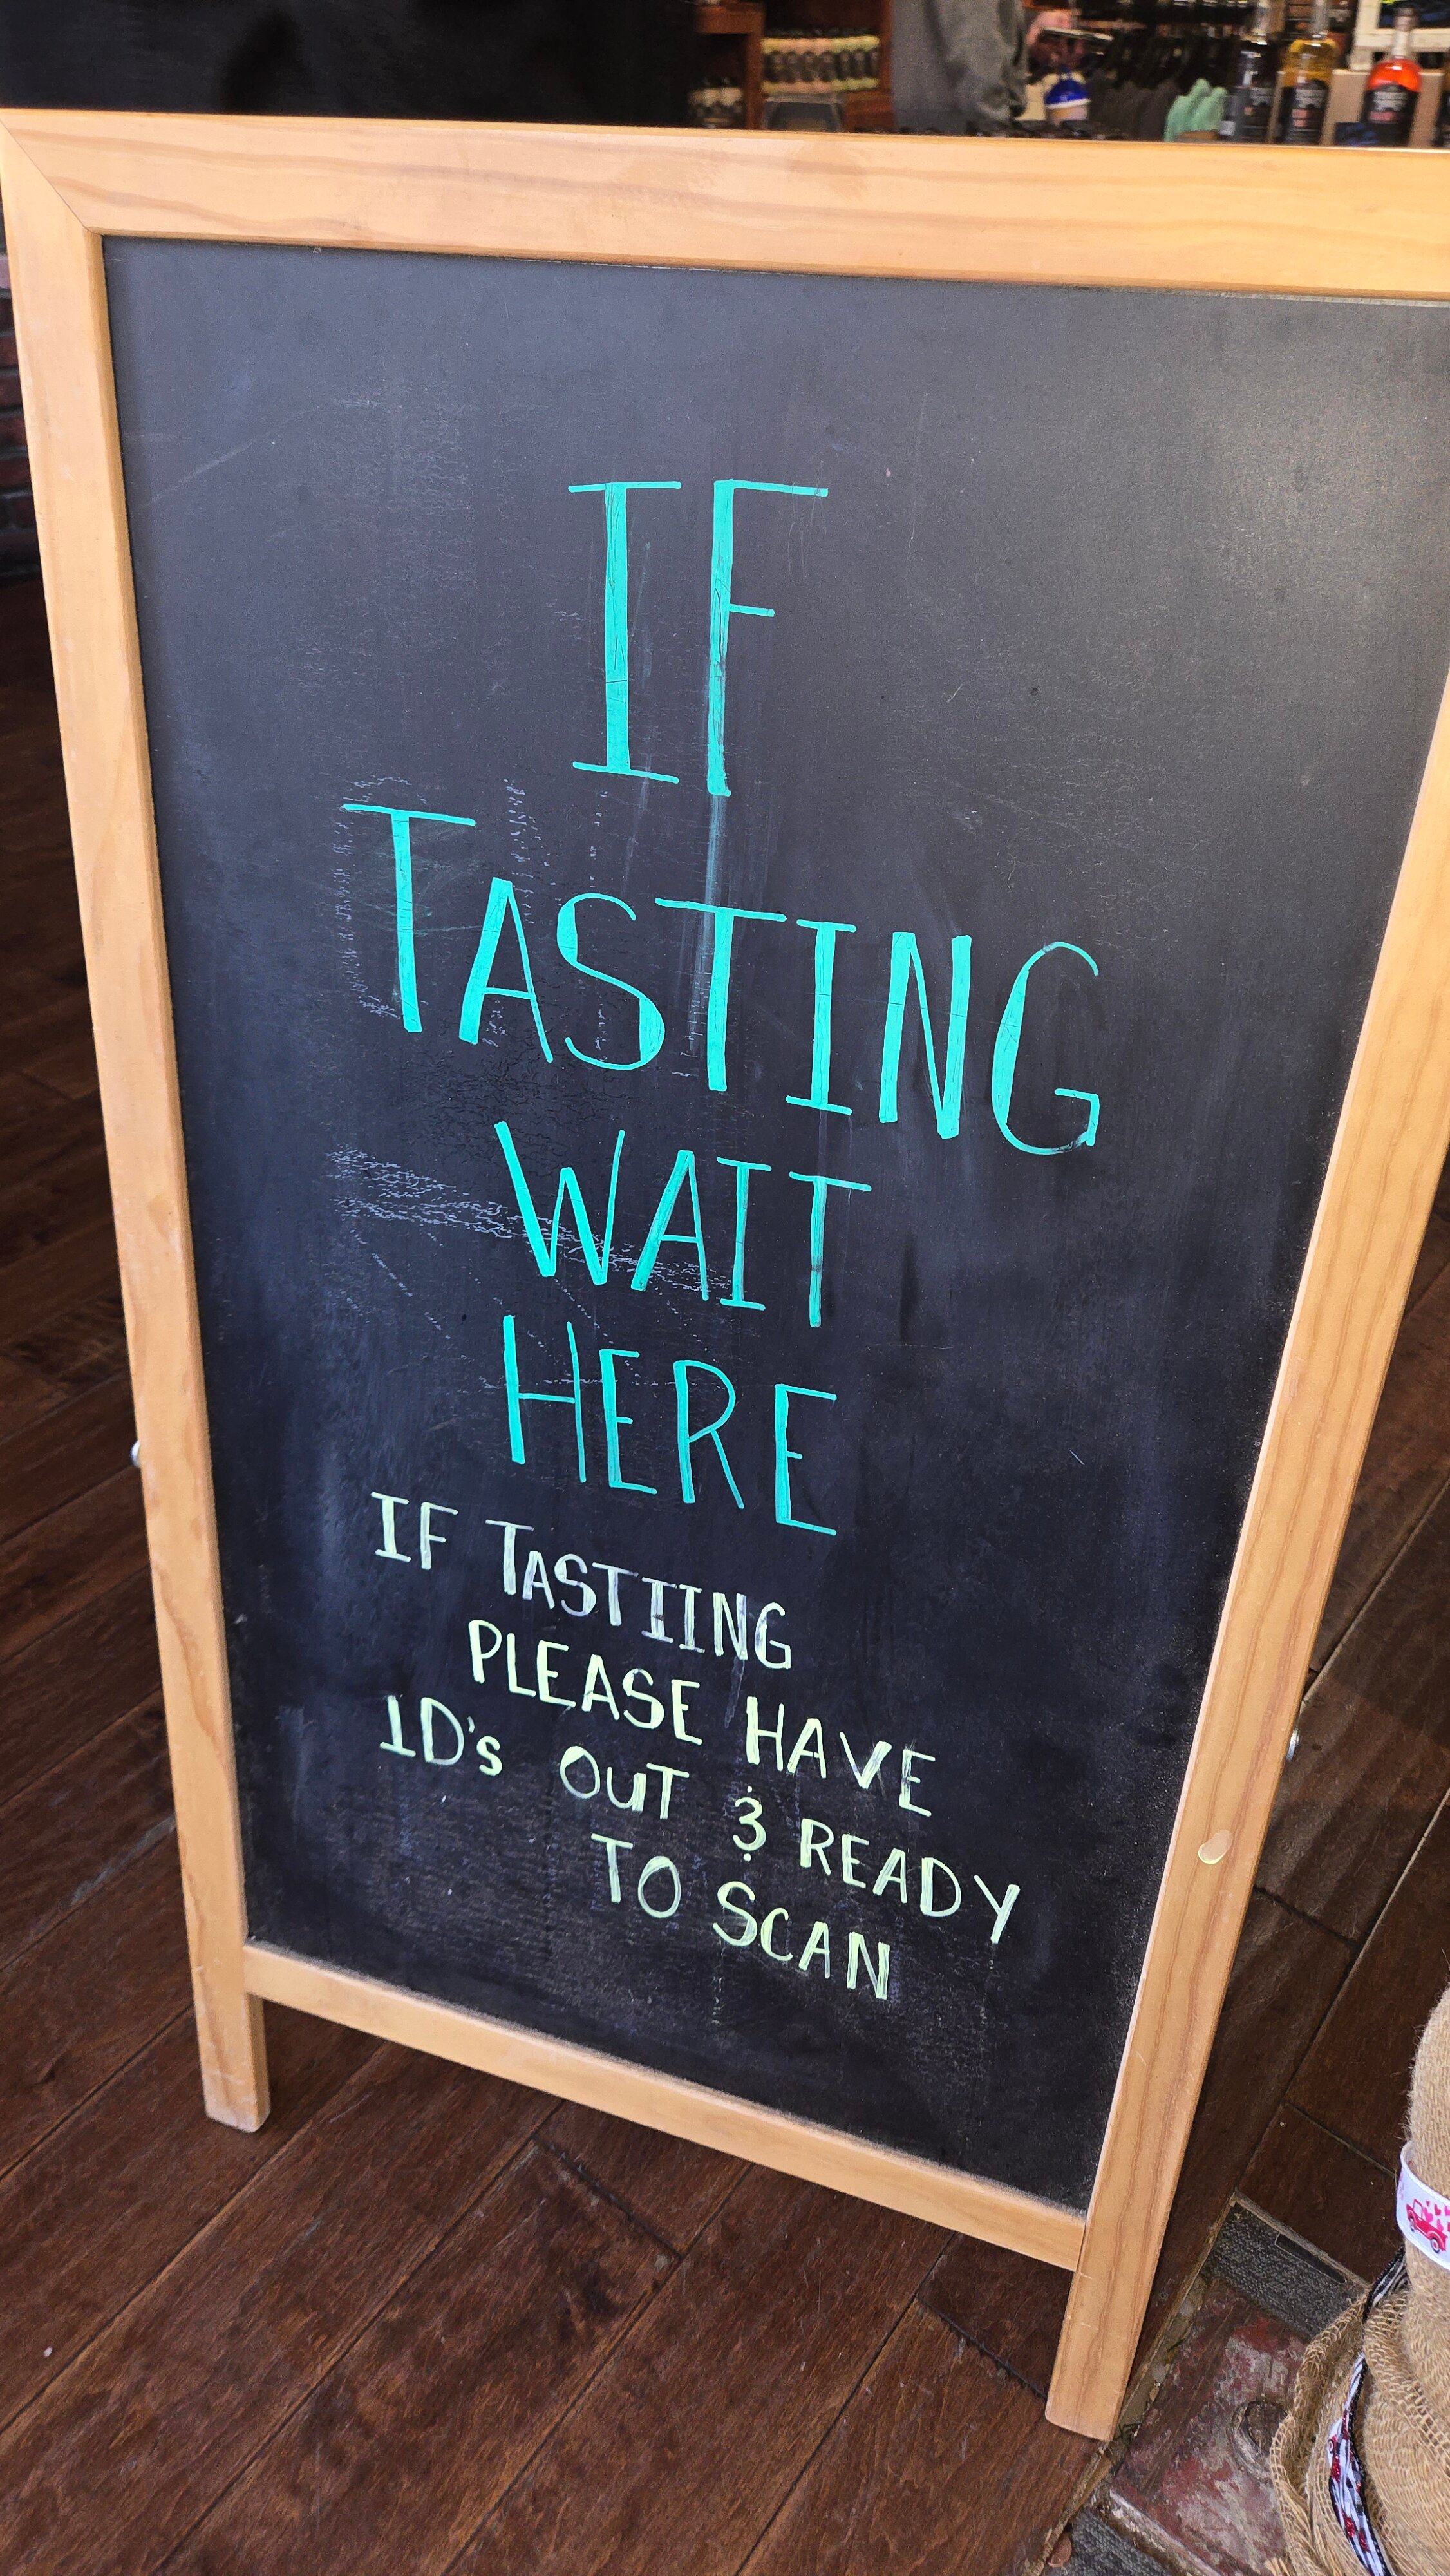 IF
TASTING
WAIT
HERE
IF TASTIING
PLEASE HAVE
ID's OUT & READY
TO SCAN